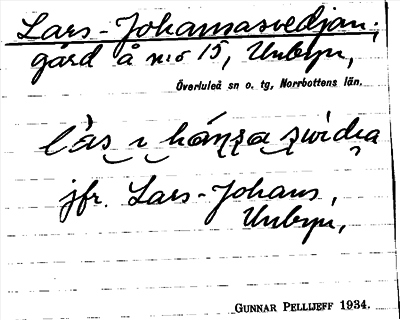 Lars-Johansasvedjan;
gård å n:o 15, Unbyn,
Överluleå sn o. tg, Norrbottens län.
jfr. Lars-Johans,
Unbyn,
GUNNAR PELLIJEFF 1934.